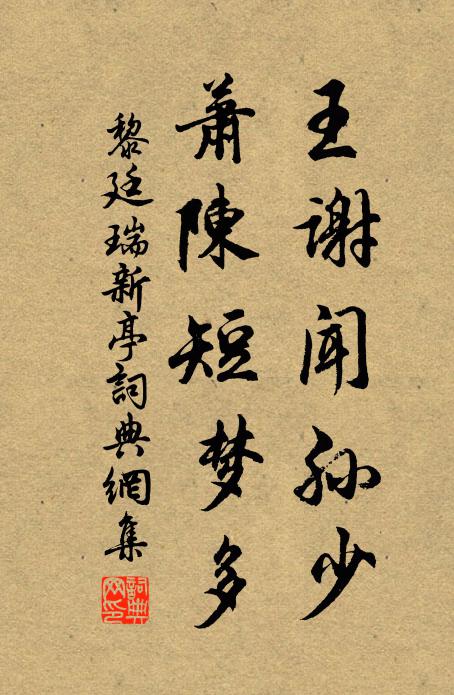 王谢闻孙少
萧陈短梦多
黎廷瑞新亭詞典網集
詞典网印